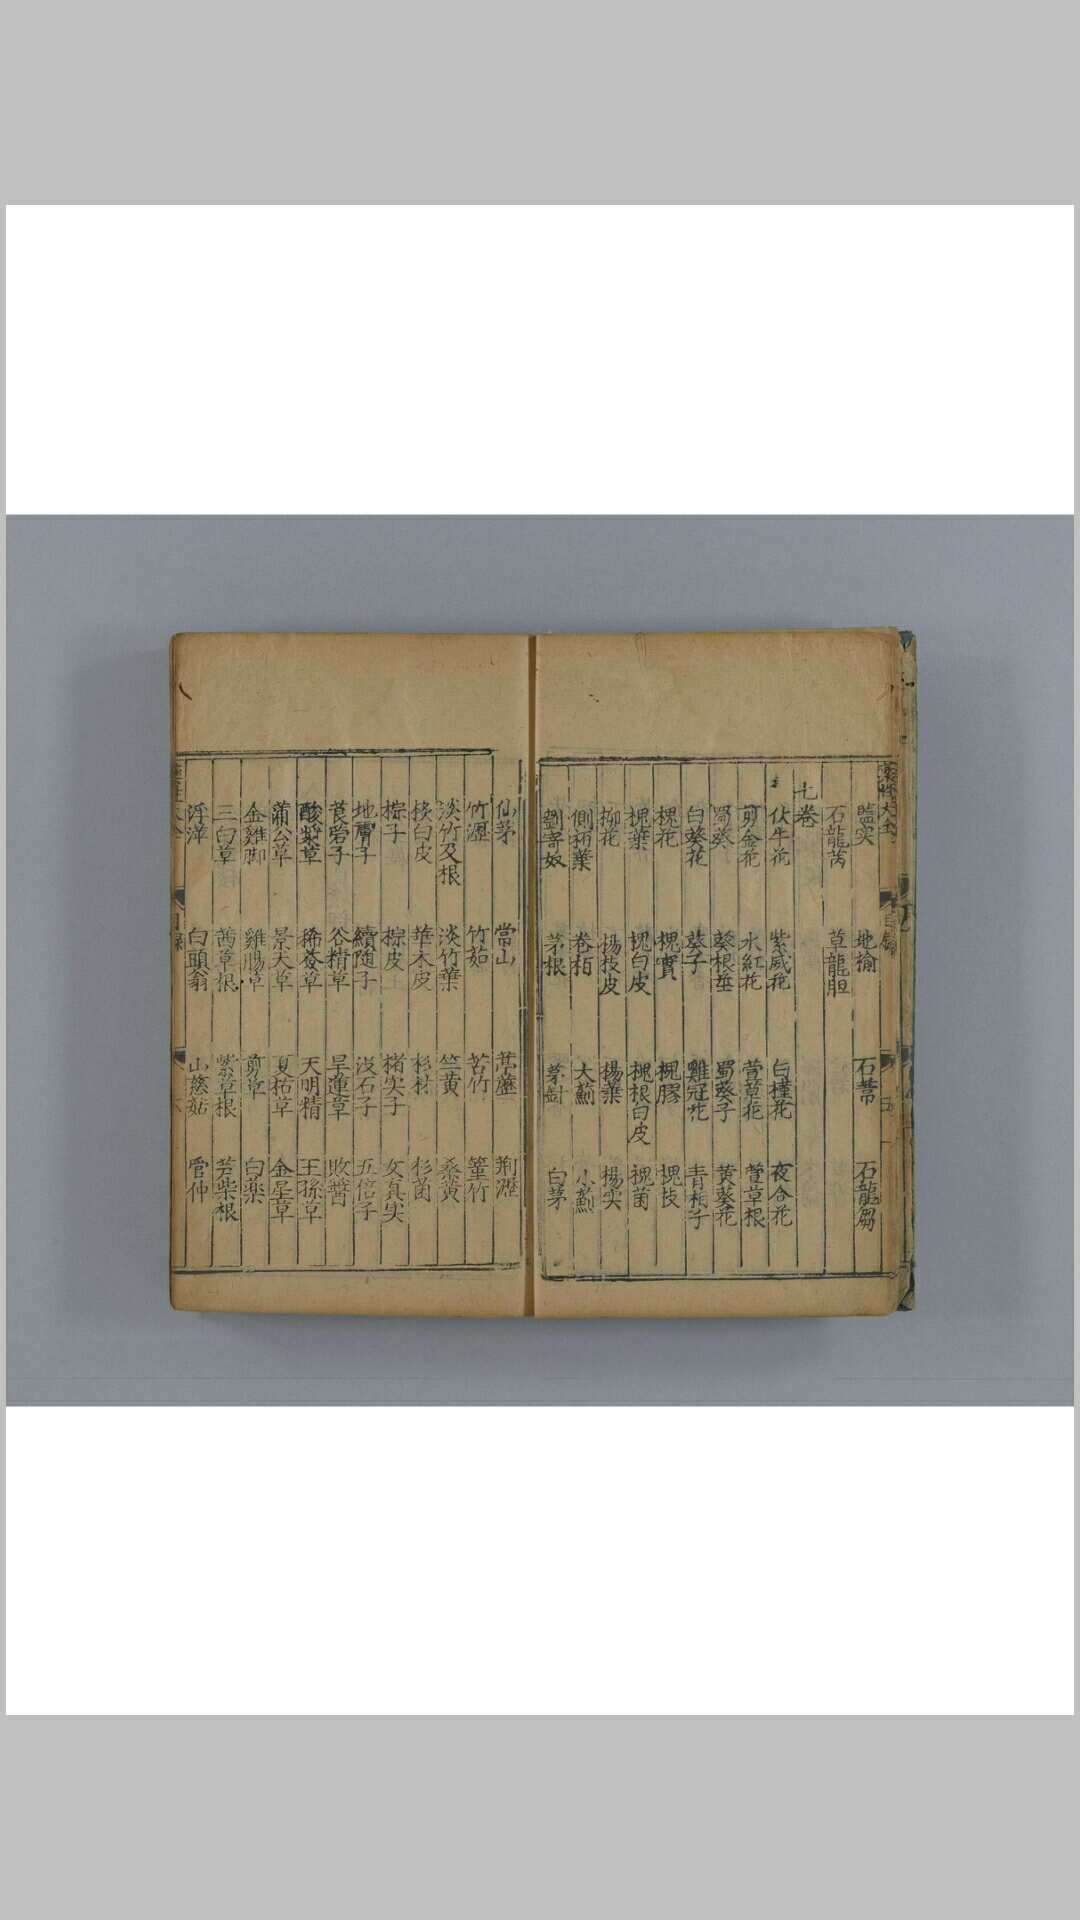 藥性大全 目錄 五
藍实 地榆 石蒂 石龍芻
石龍芮 草龍胆
七卷
伏牛花 紫葳花 白槿花 夜合花
剪金花 水紅花 萱草花 萱草根
蜀葵 葵根莖 蜀葵子 黄葵花
白葵花 葵子 雞冠花 青相子
槐花 槐實 槐膠 槐枝
槐葉 槐白皮 槐根白皮 槐菌
柳花 楊枝皮 楊葉 楊实
側栢葉 卷栢 大薊 小薊
劉寄奴 茅根 茅針 白茅
仙茅 常山 荊瀝
竹瀝 竹茹 苦竹 篁竹
淡竹及根 淡竹葉 竺黄 桑黄
桵白皮 華木皮 杉材 杉菌
棕子 棕皮 楮实子 女真实
地膚子 續随子 没石子 五倍子
莨菪子 谷精草 旱蓮草 敗醬
酸漿草 稀薟草 天明精 王孫草
蒲公草 景天草 夏枯草 金星草
金雞脚 雞腸草 剪草 白藥
三白草 茜草根 紫草根 茈柴根
浮萍 白頭翁 山慈菇 管仲
目錄 六